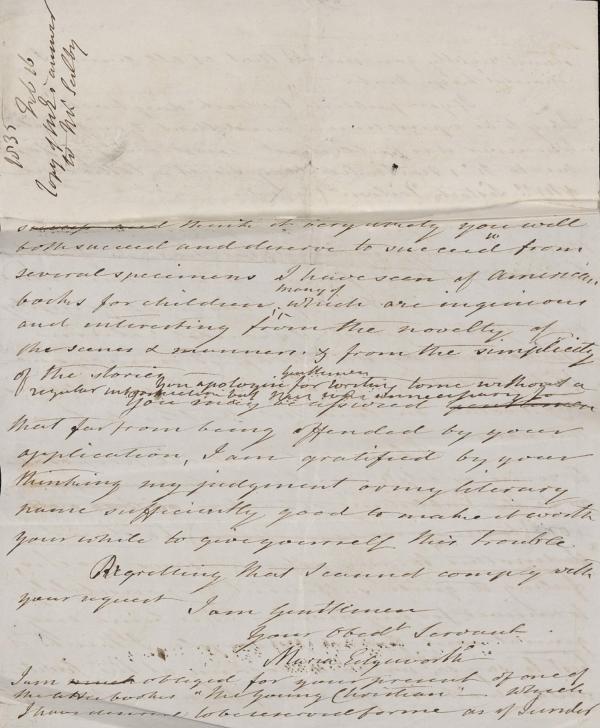 1835 Feb 16
Copy of ME's answer
to Mr Selby
success and think it very likely you will
both succeed and deserve to succeed from
several specimens I have seen of American
many of
books for children, which are ingenious
and interesting from the novelty of
the scenes & manners & from the simplicity
of the stories
gentlemen
you apologize for writing to me without a
regular introduction but was unnecessary
You may be assured gentlemen
that far from being offended by your
application, I am gratified by your
thinking my judgment or my literary
name sufficiently good to make it worth
your while to give yourself this trouble.
Regretting that I cannot comply with
your request I am Gentlemen
Your Obedt Servant
Maria Edgeworth
I am much obliged for your present of one of
the little books "The Young Christian" which
I have desired to be reserved for me as I under